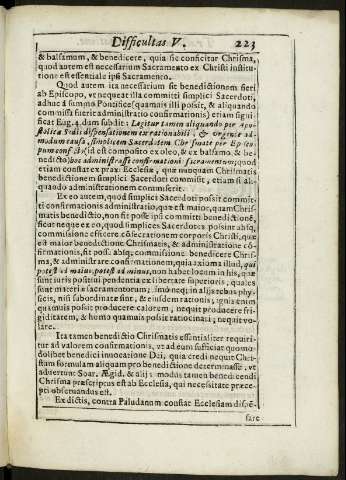 Difficultas V. 223
& balsamum, & benedicere, quia sic conficitur Chrisma,
quod autem est necessarium Sacramento ex Christi institu-
tione est essentiale ipsi Sacramento.
Quod autem ita necessarium sit benedictionem fieri
ab Episcopo, vt nequeat illa committi simplici Sacerdoti,
adhuc à summo Pontifice (quamuis illi possit, & aliquando
commissa fuerit administratio confirmationis) etiam signifi-
cat Eug. 4. dum subdit: Legitur tamen aliquando per Apo-
stolicæ Sedis dispensationem ex rationabili, & vrgente ad-
modum causa, simplicem Sacerdotem Chrismate per Episco-
pum confecto (id est composito ex oleo, & ex balsamo, & be-
nedicto) hoc administrasse confirmationis sacramentum; quod
etiam constat ex praxi Ecclesiæ, quæ nunquam Chrismatis
benedictionem simplici Sacerdoti commisit, etiam si ali-
quando administrationem commiserit.
Ex eo autem, quod simplici Sacerdoti possit commit-
ti confirmationis administratio, quæ est maior, quam Chris-
matis benedictio, non fit posse ipsi committi benedictionẽ,
sicut neque ex eo, quod simplices Sacerdotes possint absq;
commissione efficere cõsecrationem corporis Christi, quæ
est maior benedictione Chrismatis, & administratione cõ-
firmationis, fit posse absq; commissione benedicere Chris-
ma, & administrare confirmationem, quia axioma illud, qui
potest ad maius, potest ad minus, non habet locum in his, quæ
sunt iuris positiui pendentia ex libertate superioris, quales
sunt materiæ sacramentorum; Imò neq; in alijs rebus phy-
sicis, nisi subordinatæ sint, & eiusdem rationis; ignis enim
quamuis possit producere calorem, nequit producere fri-
giditatem, & homo quamuis possit ratiocinari; nequit vo-
lare.
Ita tamen benedictio Chrismatis essentialiter requiri-
tur ad valorem confirmationis, vt ad eum sufficiat quomo-
dolibet benedici inuocatione Dei, quia credi nequit Chri-
stum formulam aliquam pro benedictione determinasse. vt
aduertunt Soar. Ægid. & alij: modus tamen benedicendi
Chrisma præscriptus est ab Ecclesia, qui necessitate præce-
pti obseruandus est.
Ex dictis, contra Paludanum constat Ecclesiam dispẽ-
sare